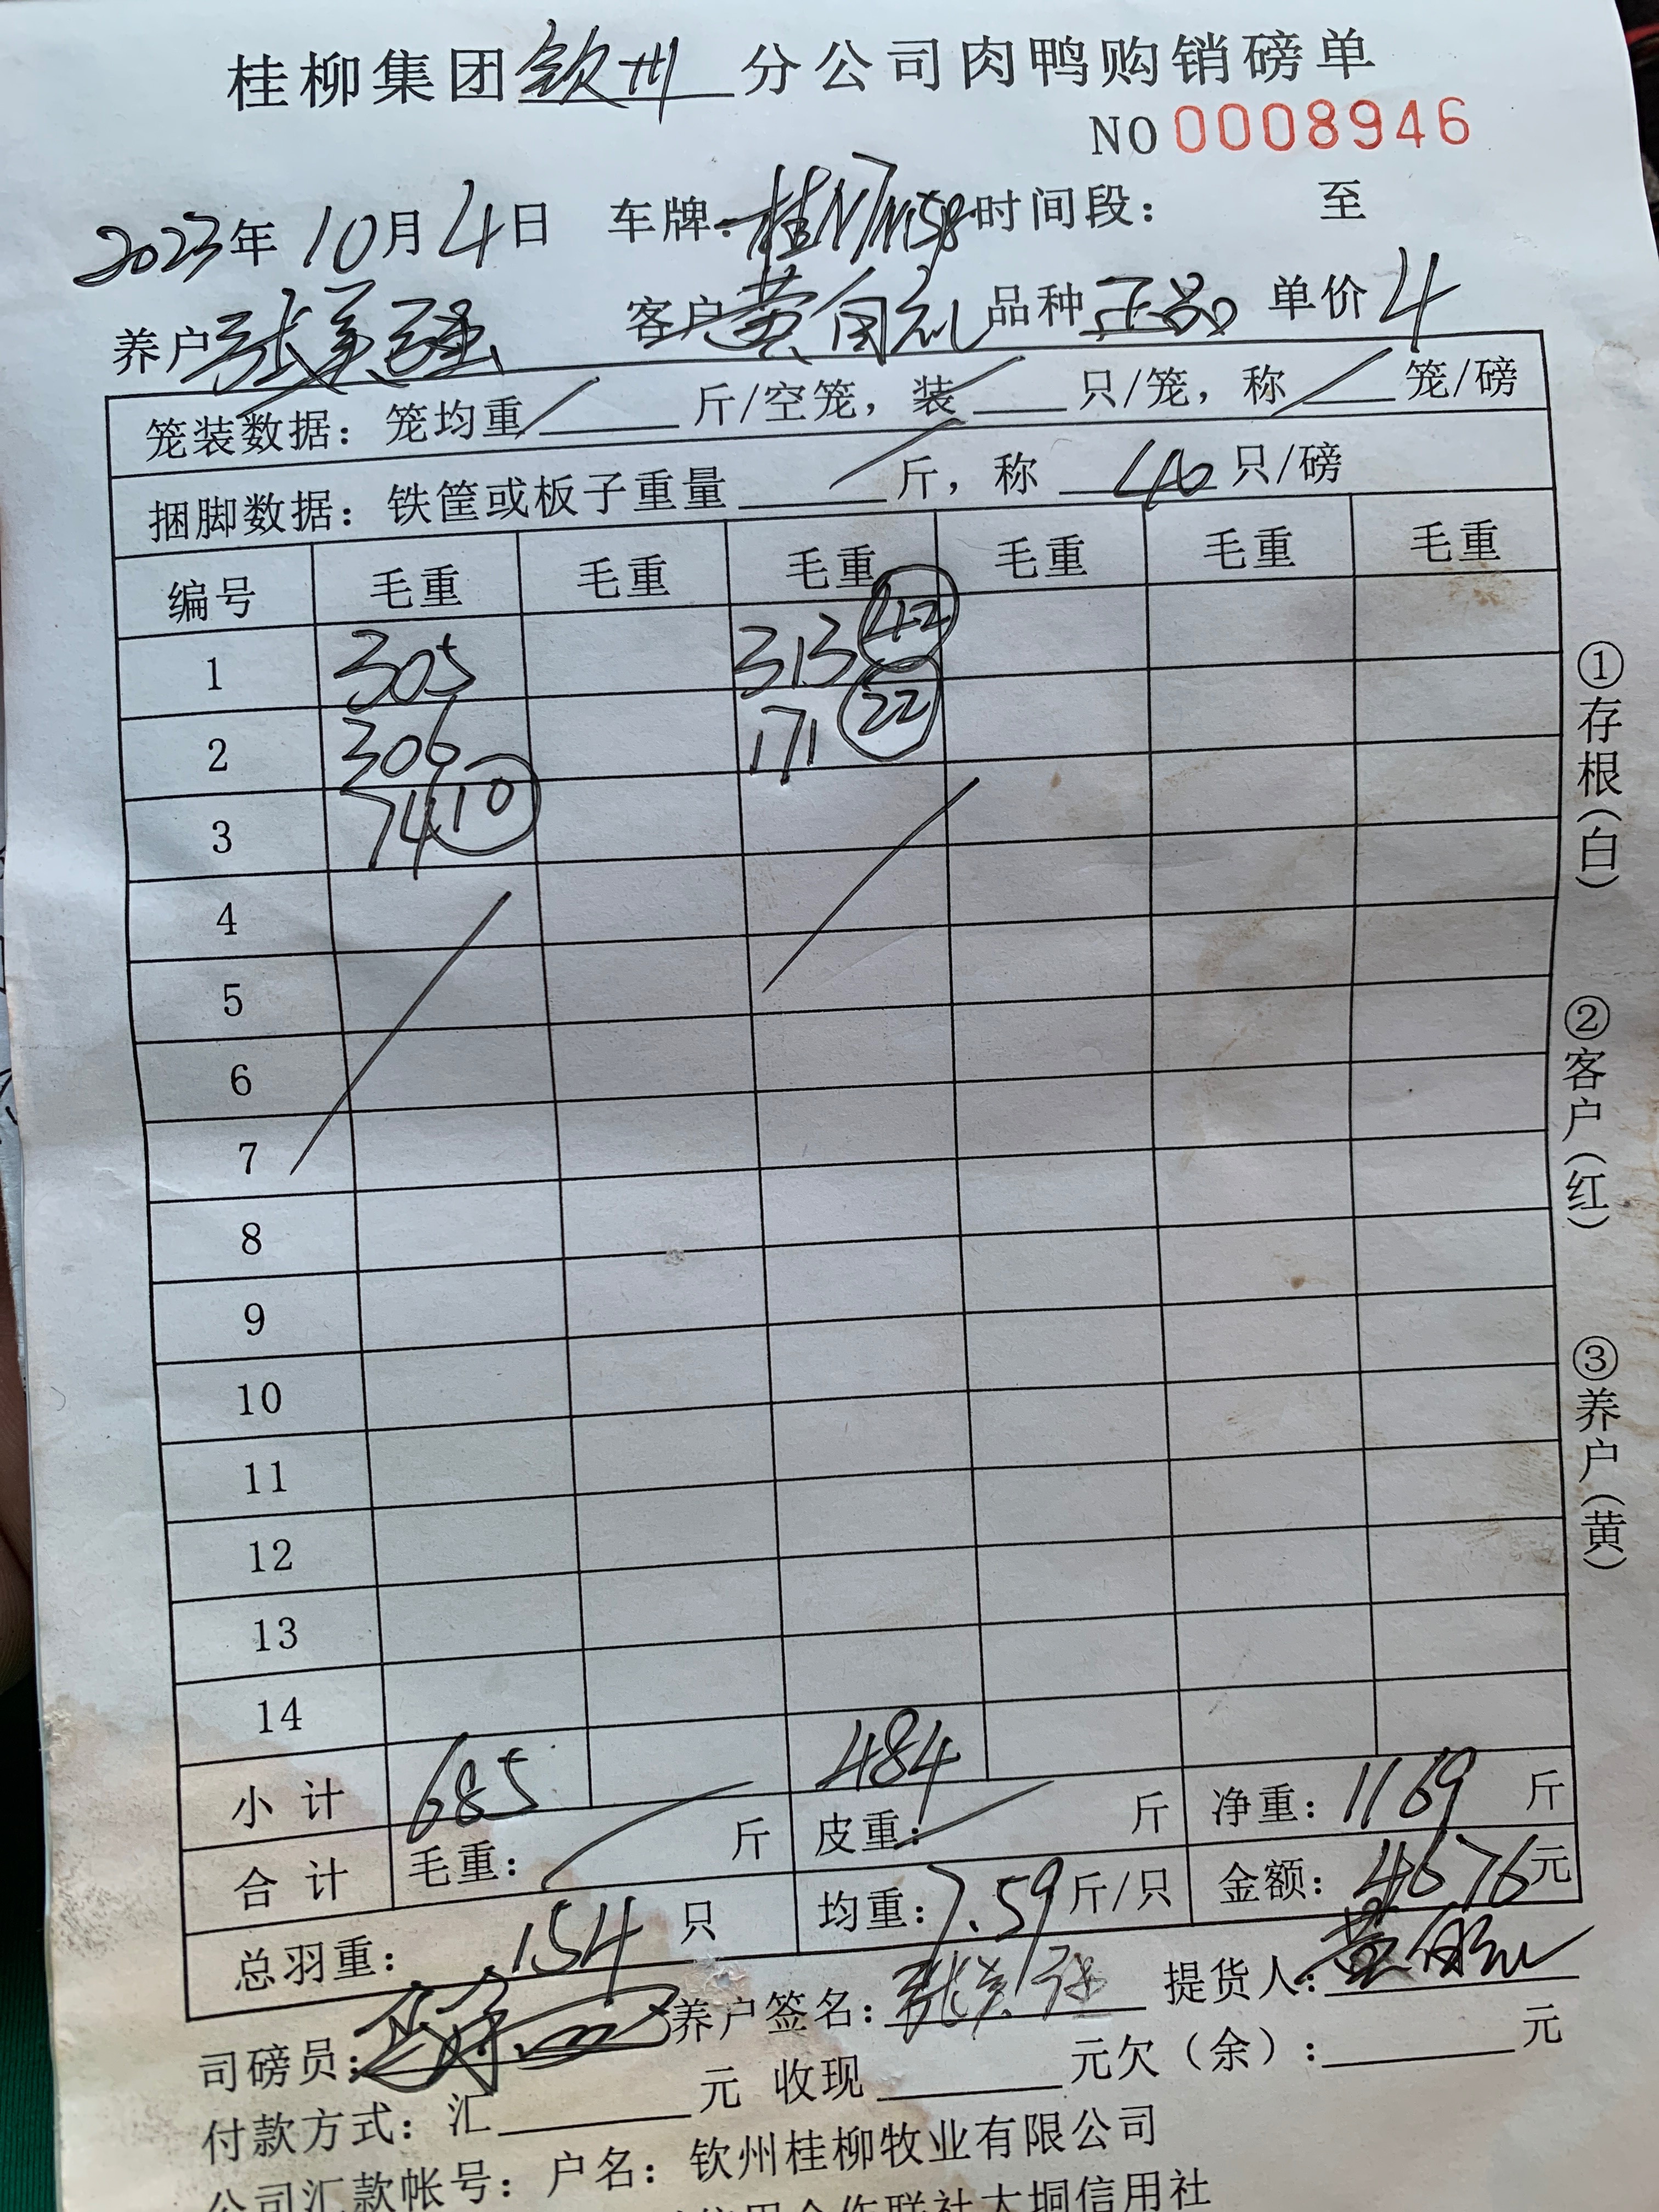 桂柳集团钦州分公司肉鸭购销磅单
NO 0008946
2023年10月4日 车牌: 时间段: 至
养户张美强 客户黄自礼 品种正品 单价4
笼装数据: 笼均重/斤/空笼, 装/只/笼, 称/笼/磅
捆脚数据: 铁筐或板子重量/斤, 称40只/磅
编号 毛重 毛重 毛重 毛重 毛重 毛重
1 305 313 42
2 306 171 22
3 74 10
4
5
6
7
8
9
10
11
12
13
14
小计 685 484
合计 毛重: / 斤 皮重: / 斤 净重: 1169 斤
总羽重: 154 只 均重: 7.59 斤/只 金额: 4676元
司磅员: 养户签名: 张美强 提货人: 黄自礼
付款方式: 汇 元 收现 元欠(余): 元
公司汇款帐号: 户名: 钦州桂柳牧业有限公司
信用合作联社大垌信用社
①存根(白)
②客户(红)
③养户(黄)